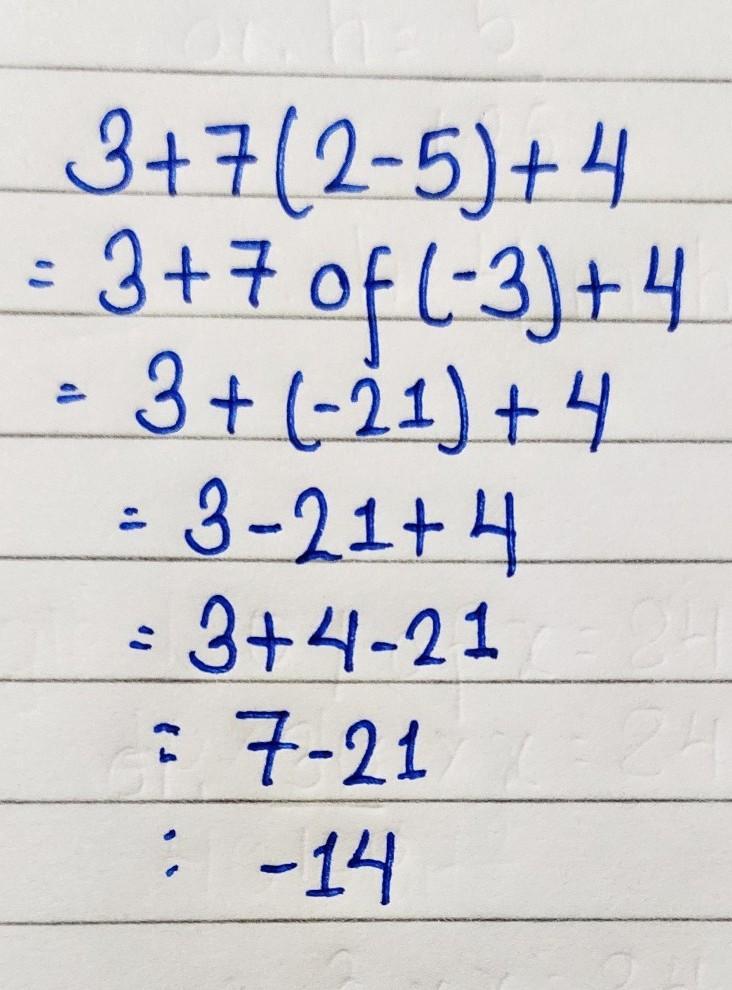 3+7(2-5)+4
= 3+7 of (-3)+4
= 3+(-21)+4
= 3-21+4
= 3+4-21
= 7-21
= -14